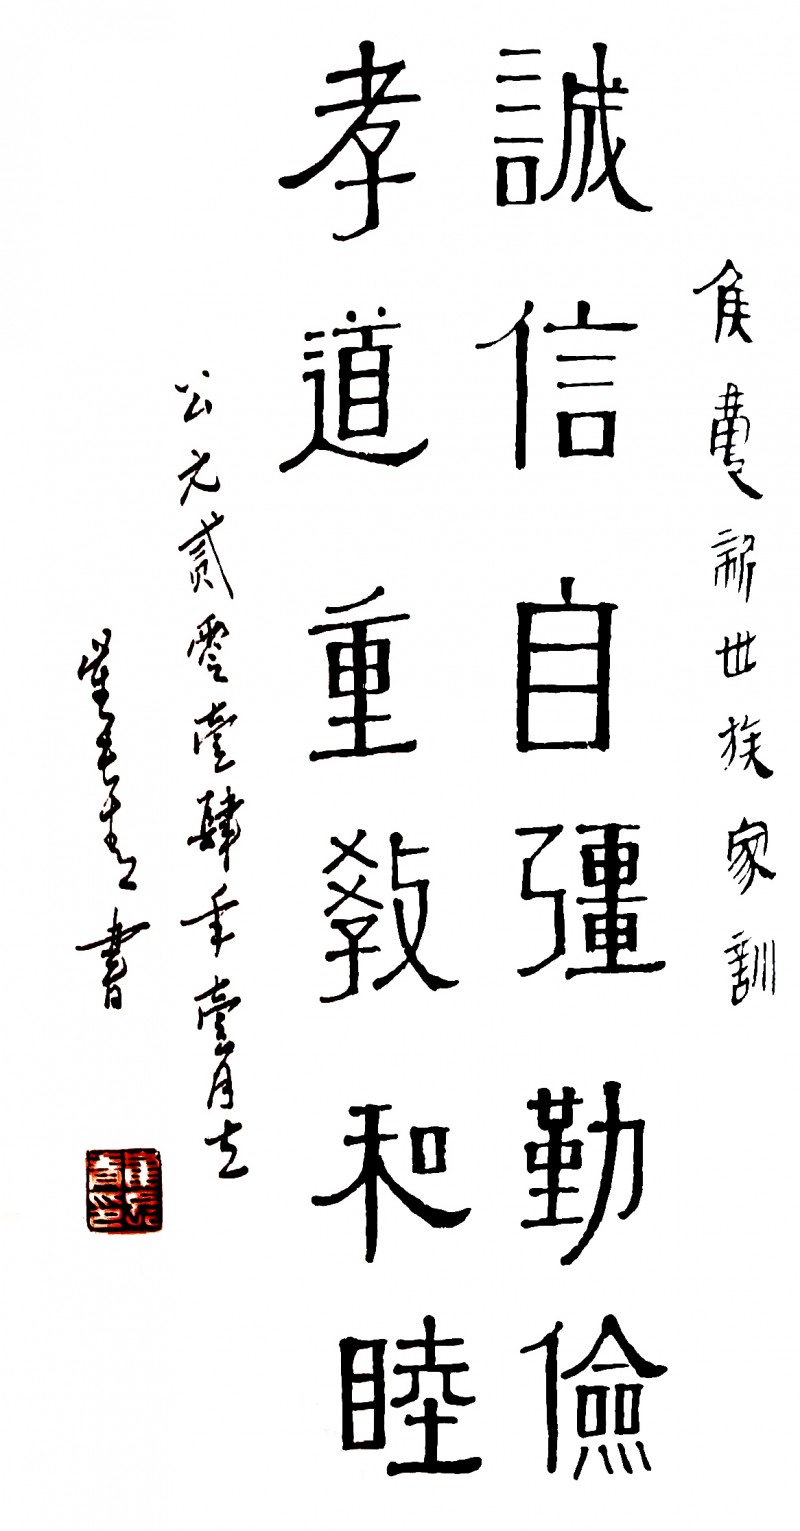 侯新世族家訓
誠信自彊勤儉
孝道重敎和睦
公元貳零壹肆年壹月立
書